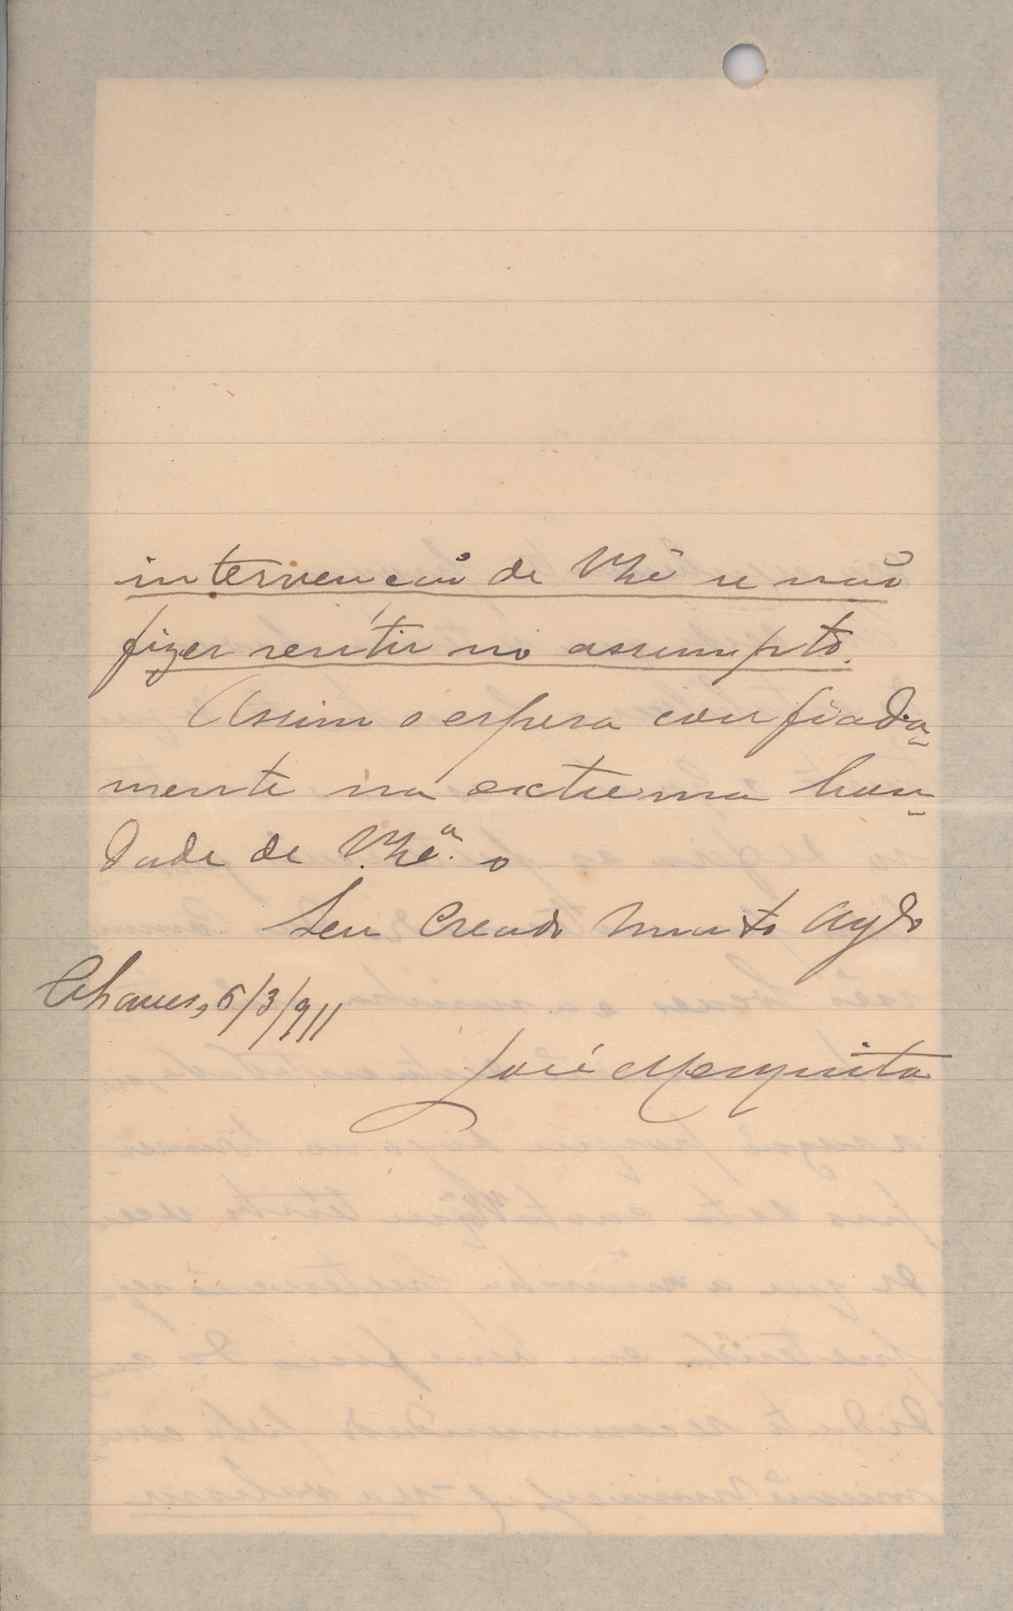 intervenção de V.Exª se não
fizer sentir no assumpto.
Assim o espera confiada-
mente na extrema bon-
dade de V.Exª o
Seu Creado Muito Agdo
Chaves, 6/3/911
José Mesquita